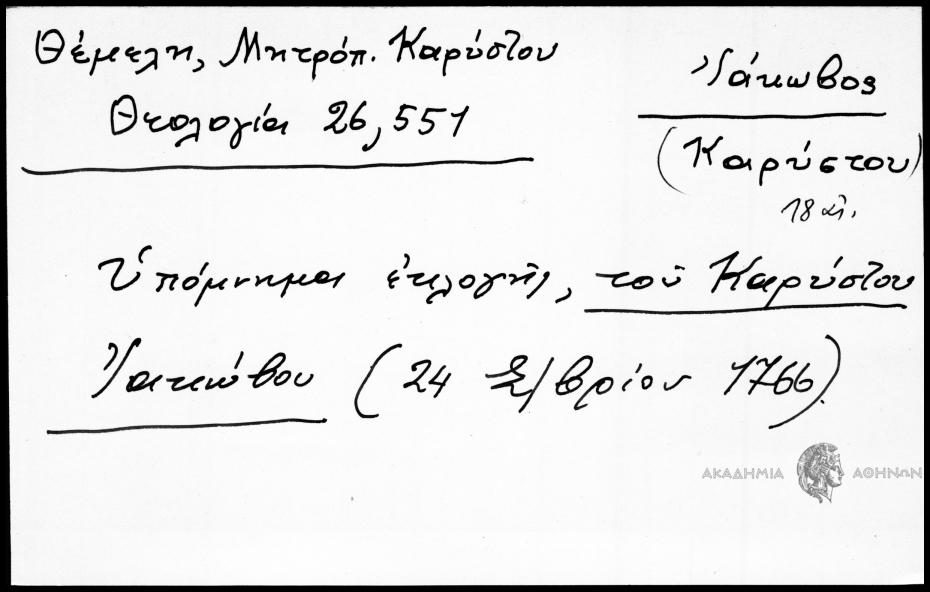 Θέμελη, Μητρόπ. Καρύστου
Θεολογία 26, 551
Ἰάκωβος
(Καρύστου)
18 αἰ.
Ὑπόμνημα ἐκλογῆς, τοῦ Καρύστου
Ἰακώβου (24 /βρίου 1766).
ΑΚΑΔΗΜΙΑ ΑΘΗΝΩΝ